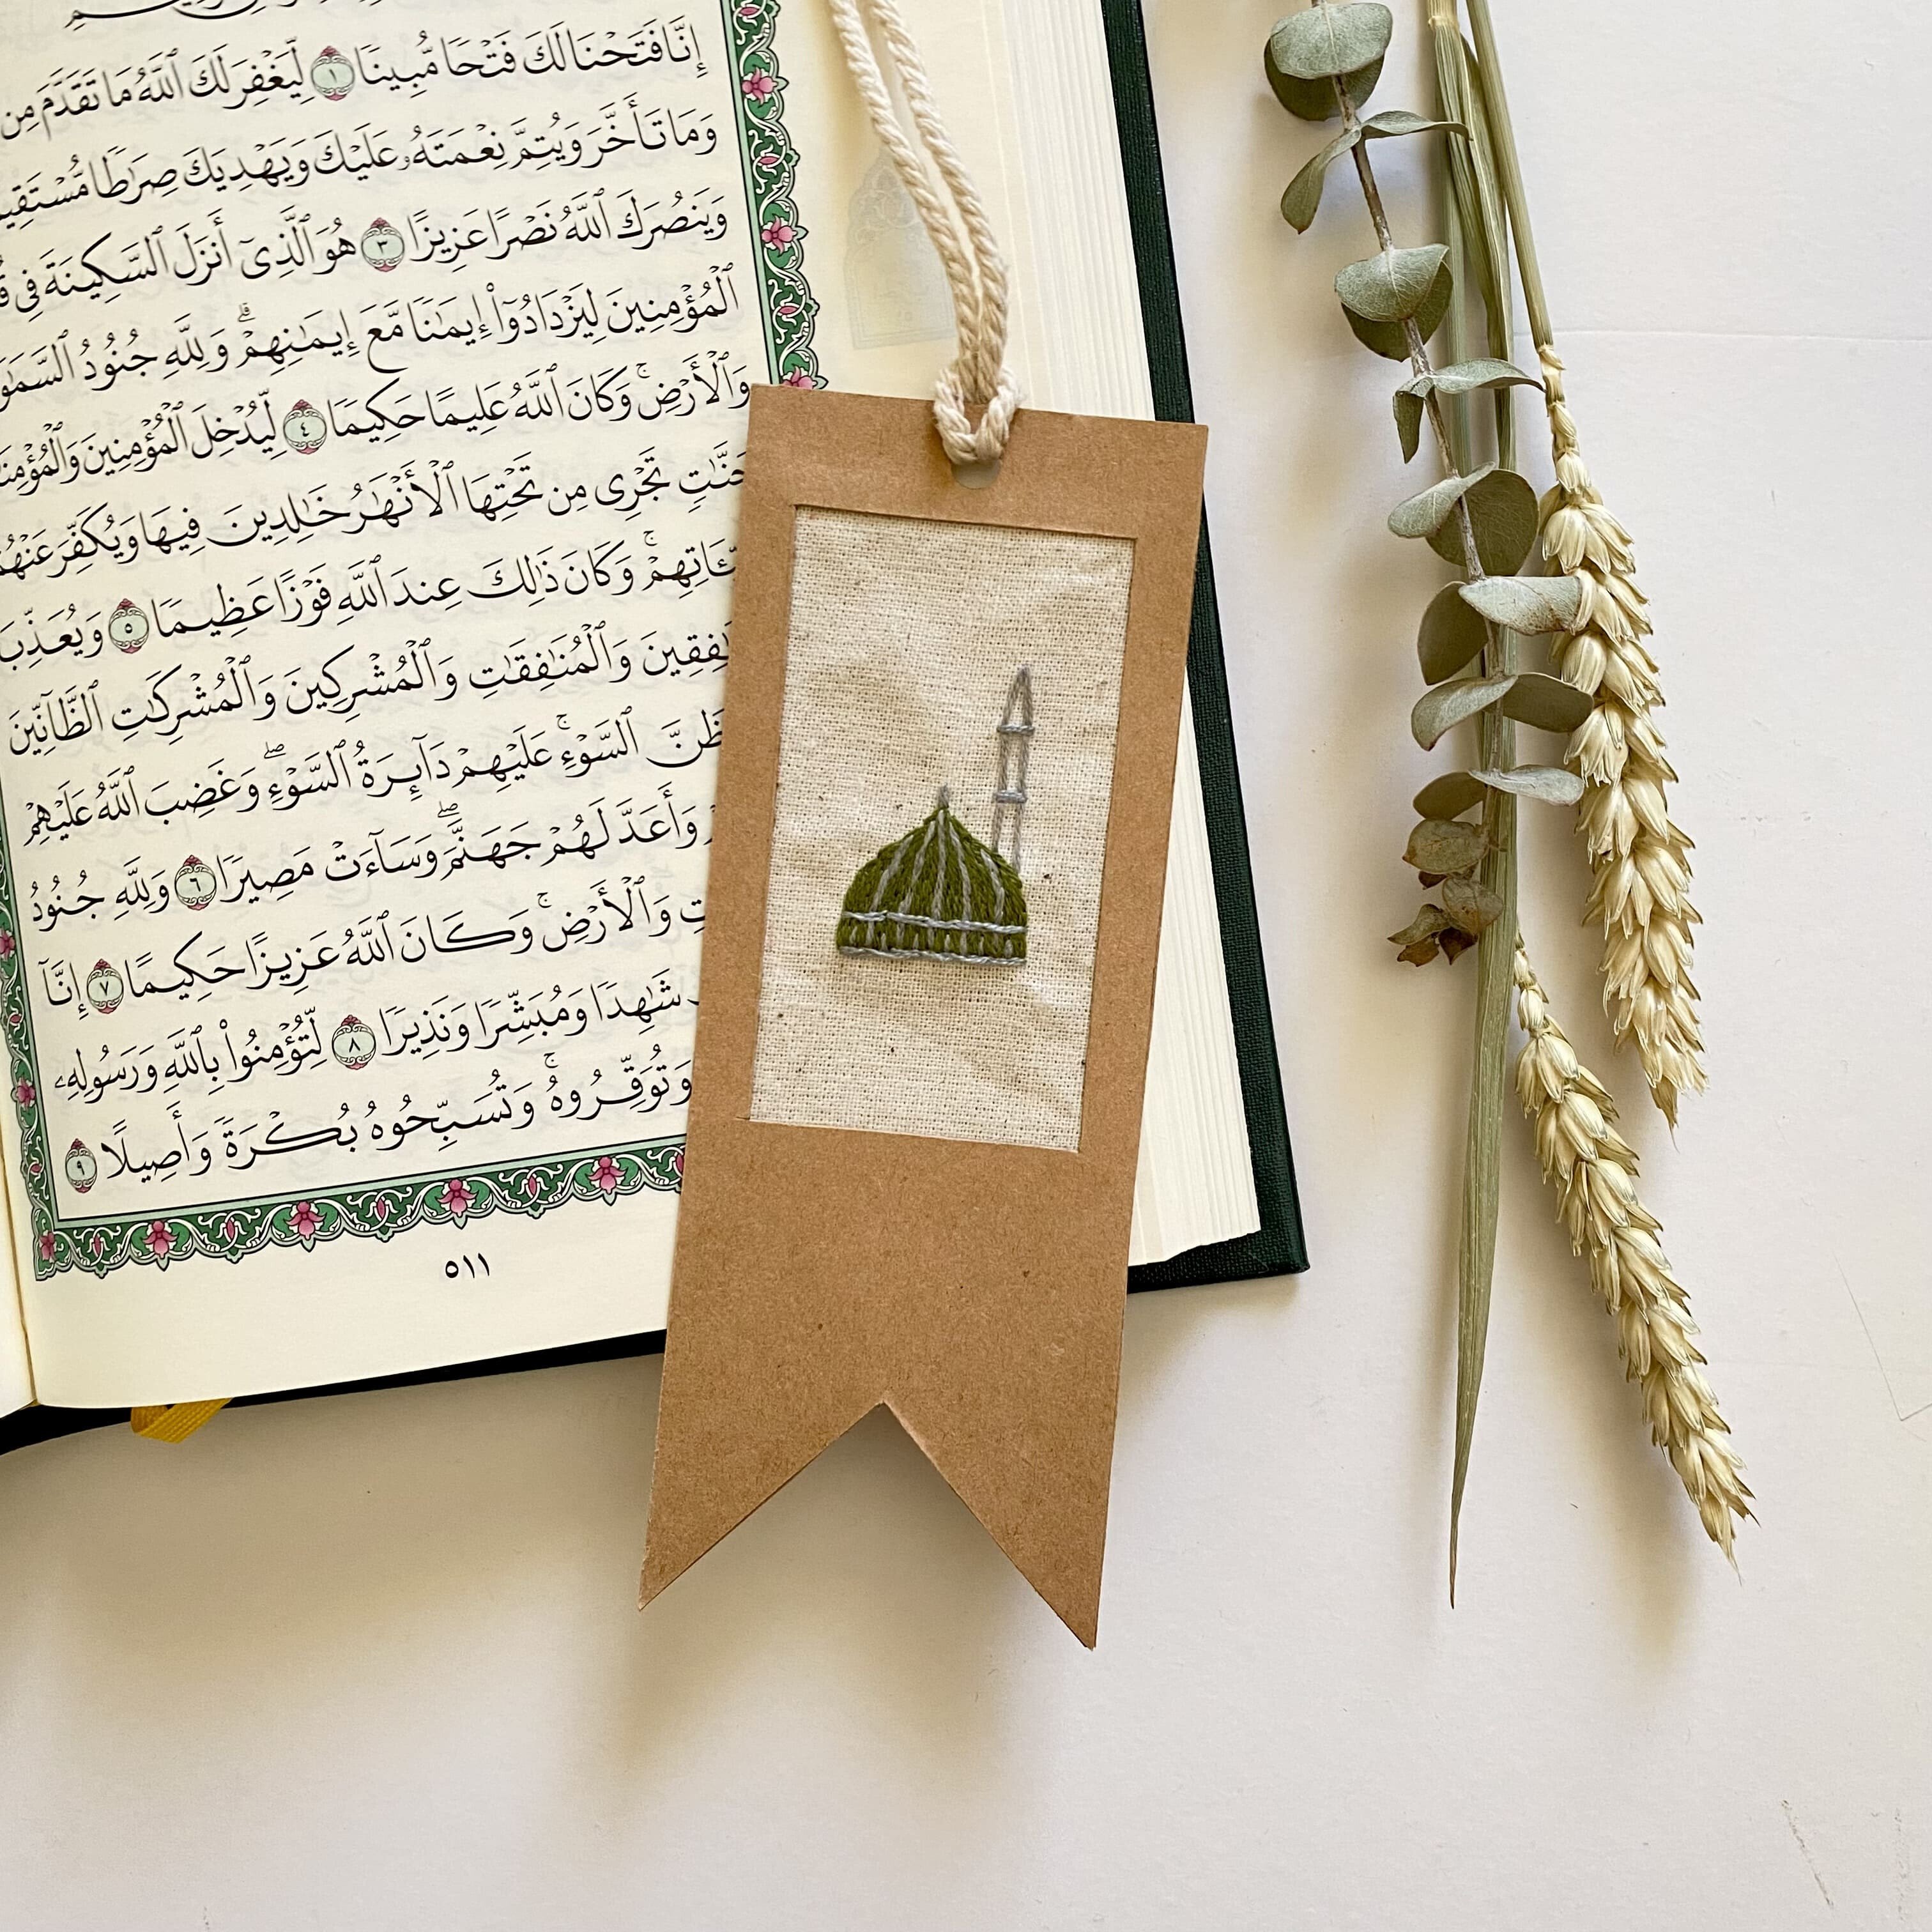 إِنَّا فَتَحْنَا لَكَ فَتْحًا مُّبِينًا ١ لِّيَغْفِرَ لَكَ ٱللَّهُ مَا تَقَدَّمَ مِن
وَمَا تَأَخَّرَ وَيُتِمَّ نِعْمَتَهُۥ عَلَيْكَ وَيَهْدِيَكَ صِرَٰطًا
وَيَنصُرَكَ ٱللَّهُ نَصْرًا عَزِيزًا ٣ هُوَ ٱلَّذِىٓ أَنزَلَ ٱلسَّكِينَةَ فِى
ٱلْمُؤْمِنِينَ لِيَزْدَادُوٓا۟ إِيمَٰنًا مَّعَ إِيمَٰنِهِمْ ۗ وَلِلَّهِ جُنُودُ
وَٱلْأَرْضِ ۚ وَكَانَ ٱللَّهُ عَلِيمًا حَكِيمًا ٤ لِّيُدْخِلَ ٱلْمُؤْمِنِينَ
جَنَّٰتٍ تَجْرِى مِن تَحْتِهَا ٱلْأَنْهَٰرُ خَٰلِدِينَ فِيهَا وَيُكَفِّرَ
وَكَانَ ذَٰلِكَ عِندَ ٱللَّهِ فَوْزًا عَظِيمًا ٥
وَٱلْمُنَٰفِقَٰتِ وَٱلْمُشْرِكِينَ وَٱلْمُشْرِكَٰتِ ٱلظَّآنِّينَ
ظَنَّ ٱلسَّوْءِ ۚ عَلَيْهِمْ دَآئِرَةُ ٱلسَّوْءِ ۖ وَغَضِبَ ٱللَّهُ عَلَيْهِمْ
وَأَعَدَّ لَهُمْ جَهَنَّمَ ۖ وَسَآءَتْ مَصِيرًا ٦ وَلِلَّهِ جُنُودُ
وَٱلْأَرْضِ ۚ وَكَانَ ٱللَّهُ عَزِيزًا حَكِيمًا ٧ إِنَّآ
شَٰهِدًا وَمُبَشِّرًا وَنَذِيرًا ٨ لِّتُؤْمِنُوا۟ بِٱللَّهِ وَرَسُولِهِۦ
وَتُوَقِّرُوهُ ۚ وَتُسَبِّحُوهُ بُكْرَةً وَأَصِيلًا ٩
٥١١